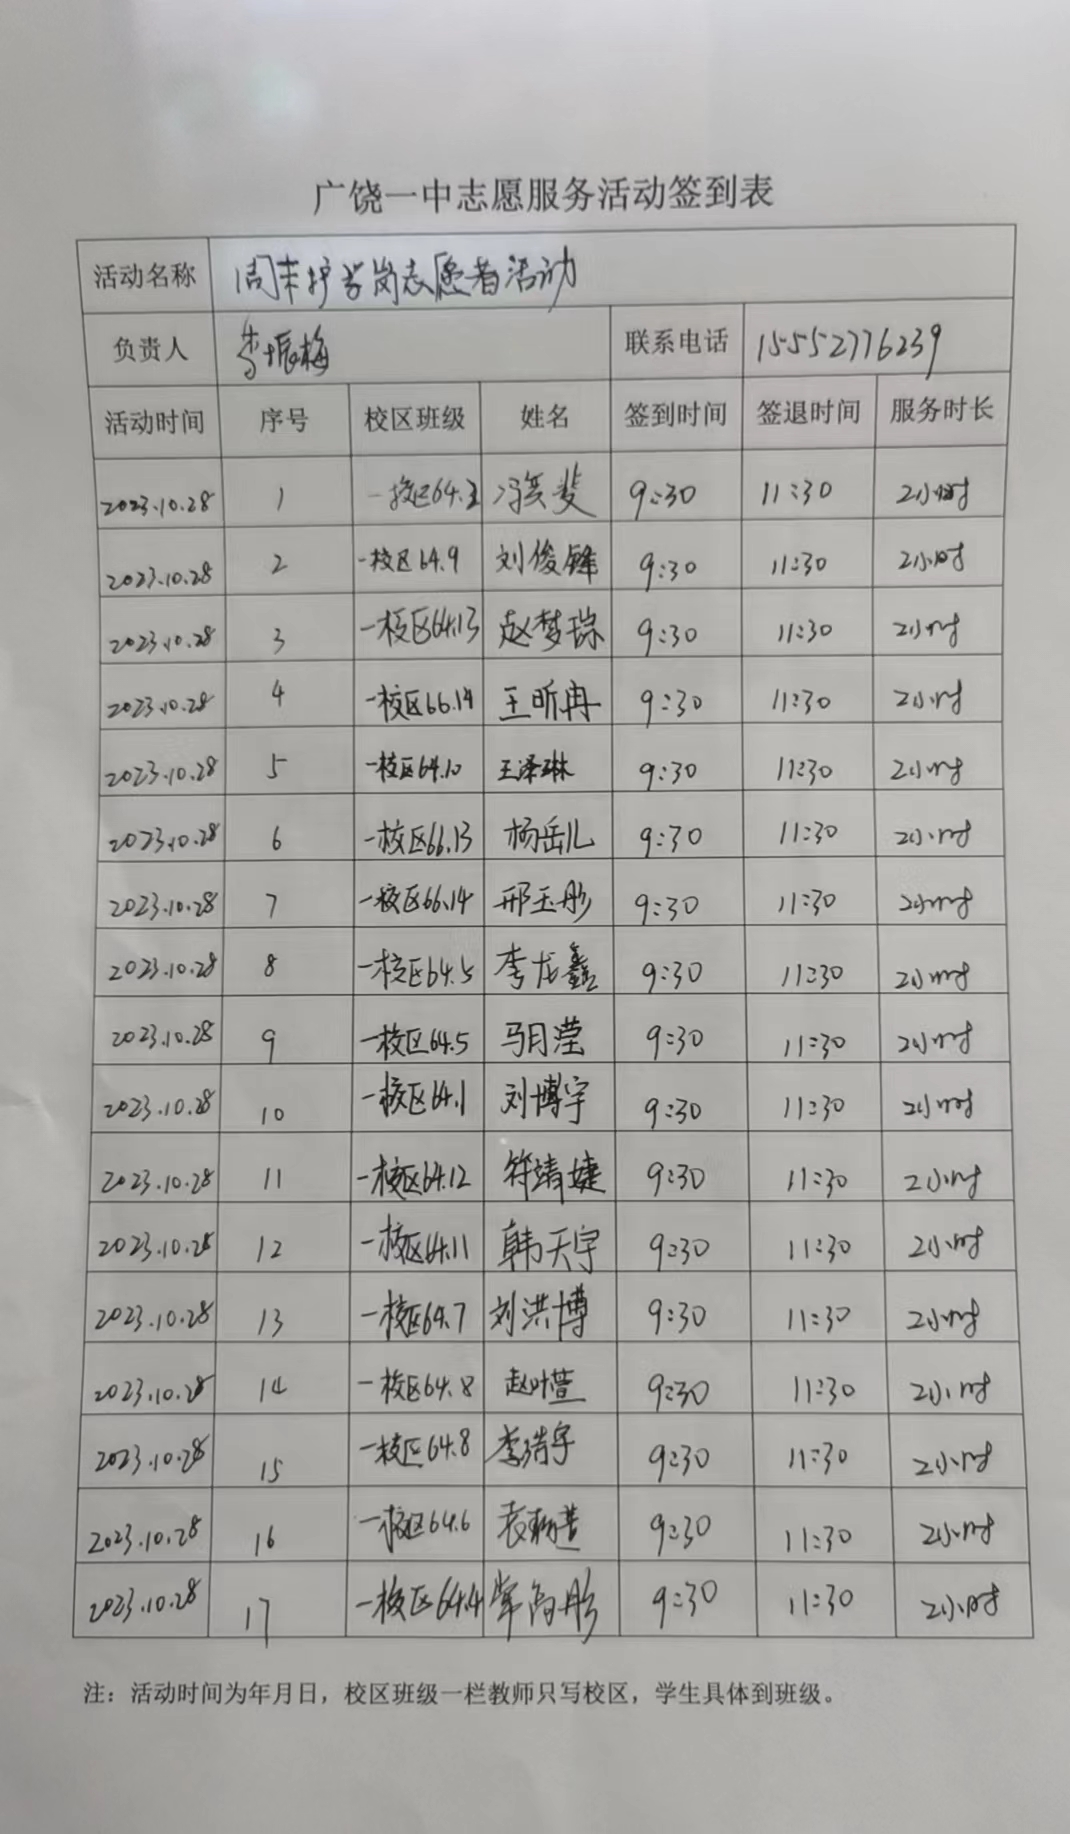 广饶一中志愿服务活动签到表
活动名称 周末护学岗志愿者活动
负责人 李振梅 联系电话 15552776239
活动时间 序号 校区班级 姓名 签到时间 签退时间 服务时长
2023.10.28 1 一校区64.3 冯 斐 9:30 11:30 2小时
2023.10.28 2 一校区64.9 刘俊锋 9:30 11:30 2小时
2023.10.28 3 一校区64.13 赵梦琮 9:30 11:30 2小时
2023.10.28 4 一校区66.14 王昕冉 9:30 11:30 2小时
2023.10.28 5 一校区64.10 王泽琳 9:30 11:30 2小时
2023.10.28 6 一校区66.13 杨岳儿 9:30 11:30 2小时
2023.10.28 7 一校区66.14 邢玉彤 9:30 11:30 2小时
2023.10.28 8 一校区64.5 李龙鑫 9:30 11:30 2小时
2023.10.28 9 一校区64.5 马月滢 9:30 11:30 2小时
2023.10.28 10 一校区64.1 刘博宇 9:30 11:30 2小时
2023.10.28 11 一校区64.12 符靖婕 9:30 11:30 2小时
2023.10.28 12 一校区64.11 韩天宇 9:30 11:30 2小时
2023.10.28 13 一校区64.7 刘洪博 9:30 11:30 2小时
2023.10.28 14 一校区64.8 赵叶萱 9:30 11:30 2小时
2023.10.28 15 一校区64.8 李浩宇 9:30 11:30 2小时
2023.10.28 16 一校区64.6 袁 9:30 11:30 2小时
2023.10.28 17 一校区64.4 常 彤 9:30 11:30 2小时
注：活动时间为年月日，校区班级一栏教师只写校区，学生具体到班级。